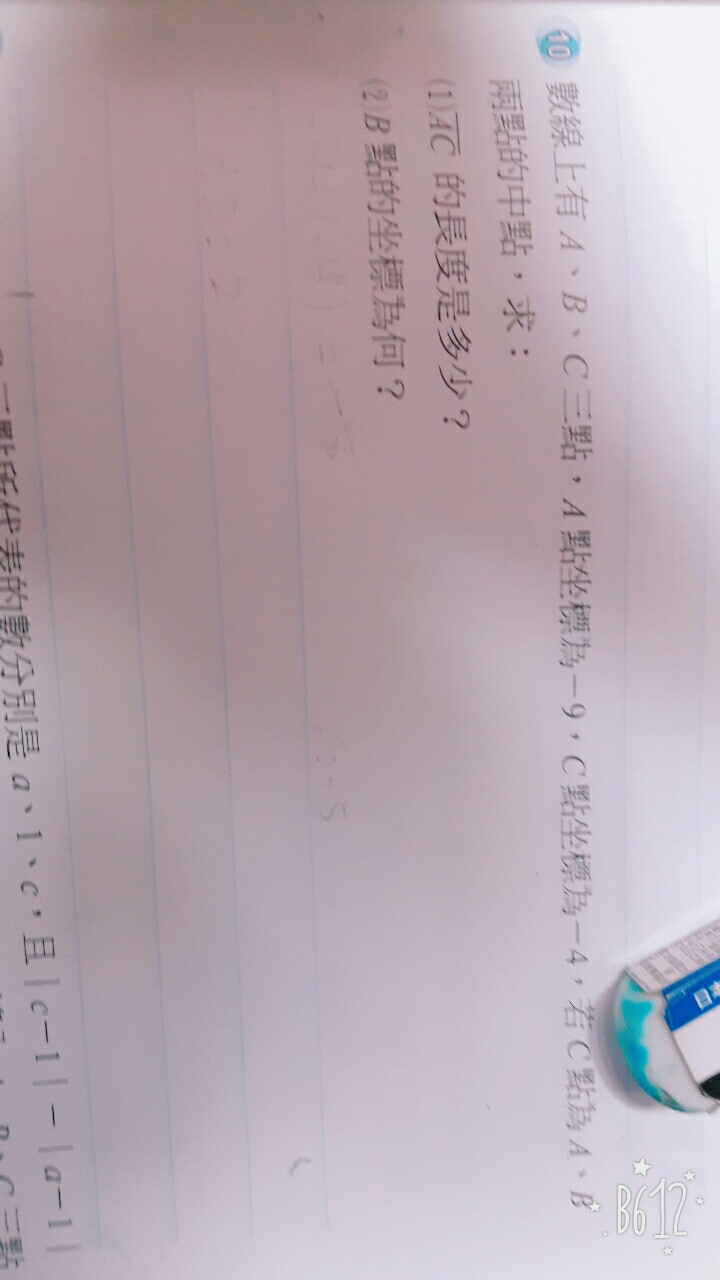 10 數線上有 A、B、C 三點，A 點坐標為－9，C 點坐標為－4，若 C 點為 A、B
兩點的中點，求：
(1) AC 的長度是多少？
(2) B 點的坐標為何？
) = -
-5
點所代表的數分別是 a、1、c，且｜c－1｜－｜a－1｜
B、C 三點
B612